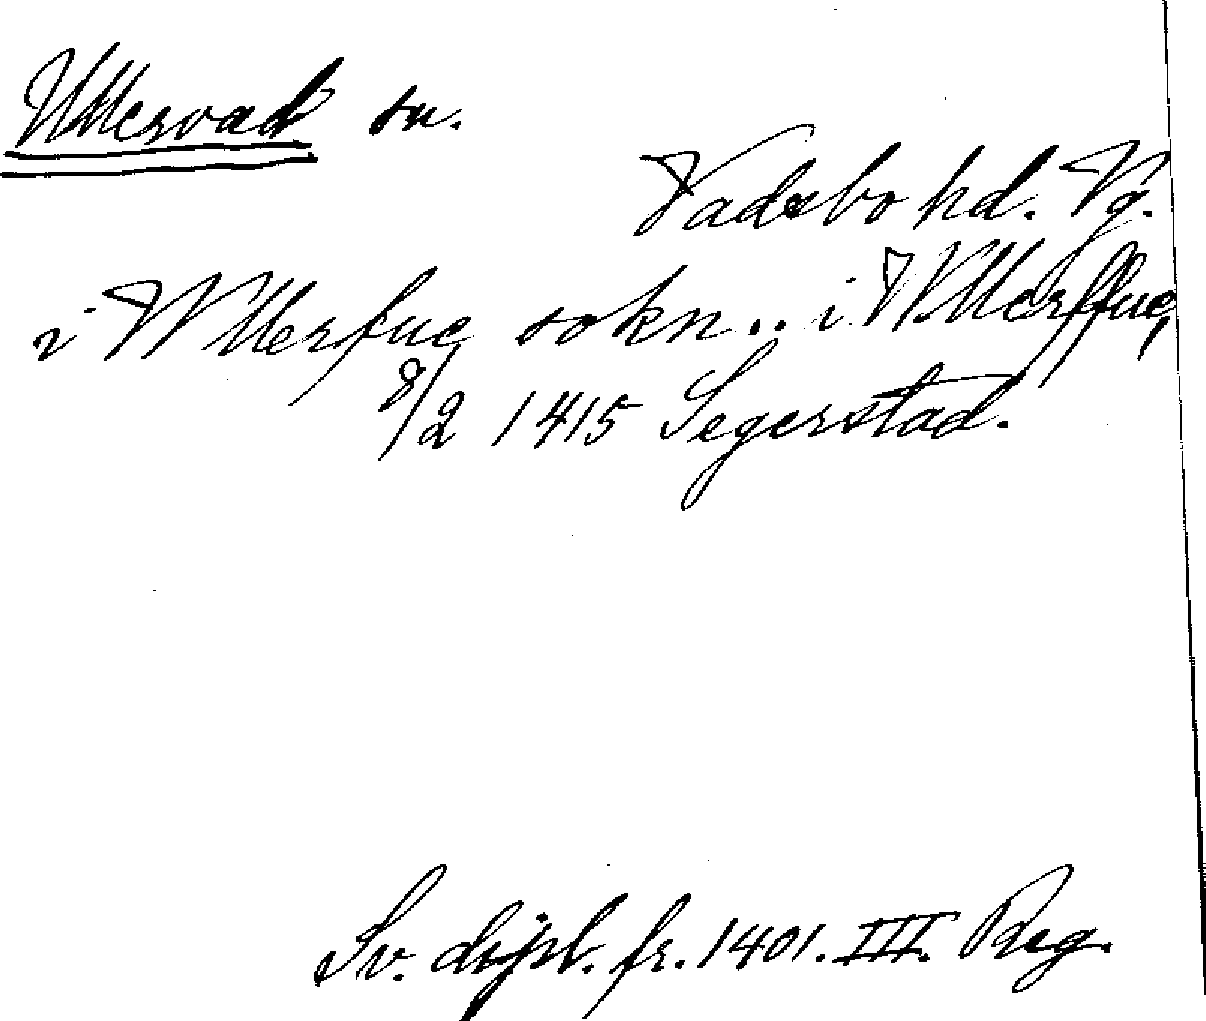 Ullervad sn.
Vadsbo hd. Vg.
i Wllerfue sokn .. i Wllerffue,
8/2 1415 Segerstad.
Sv. dipl. fr. 1401. III. Reg.